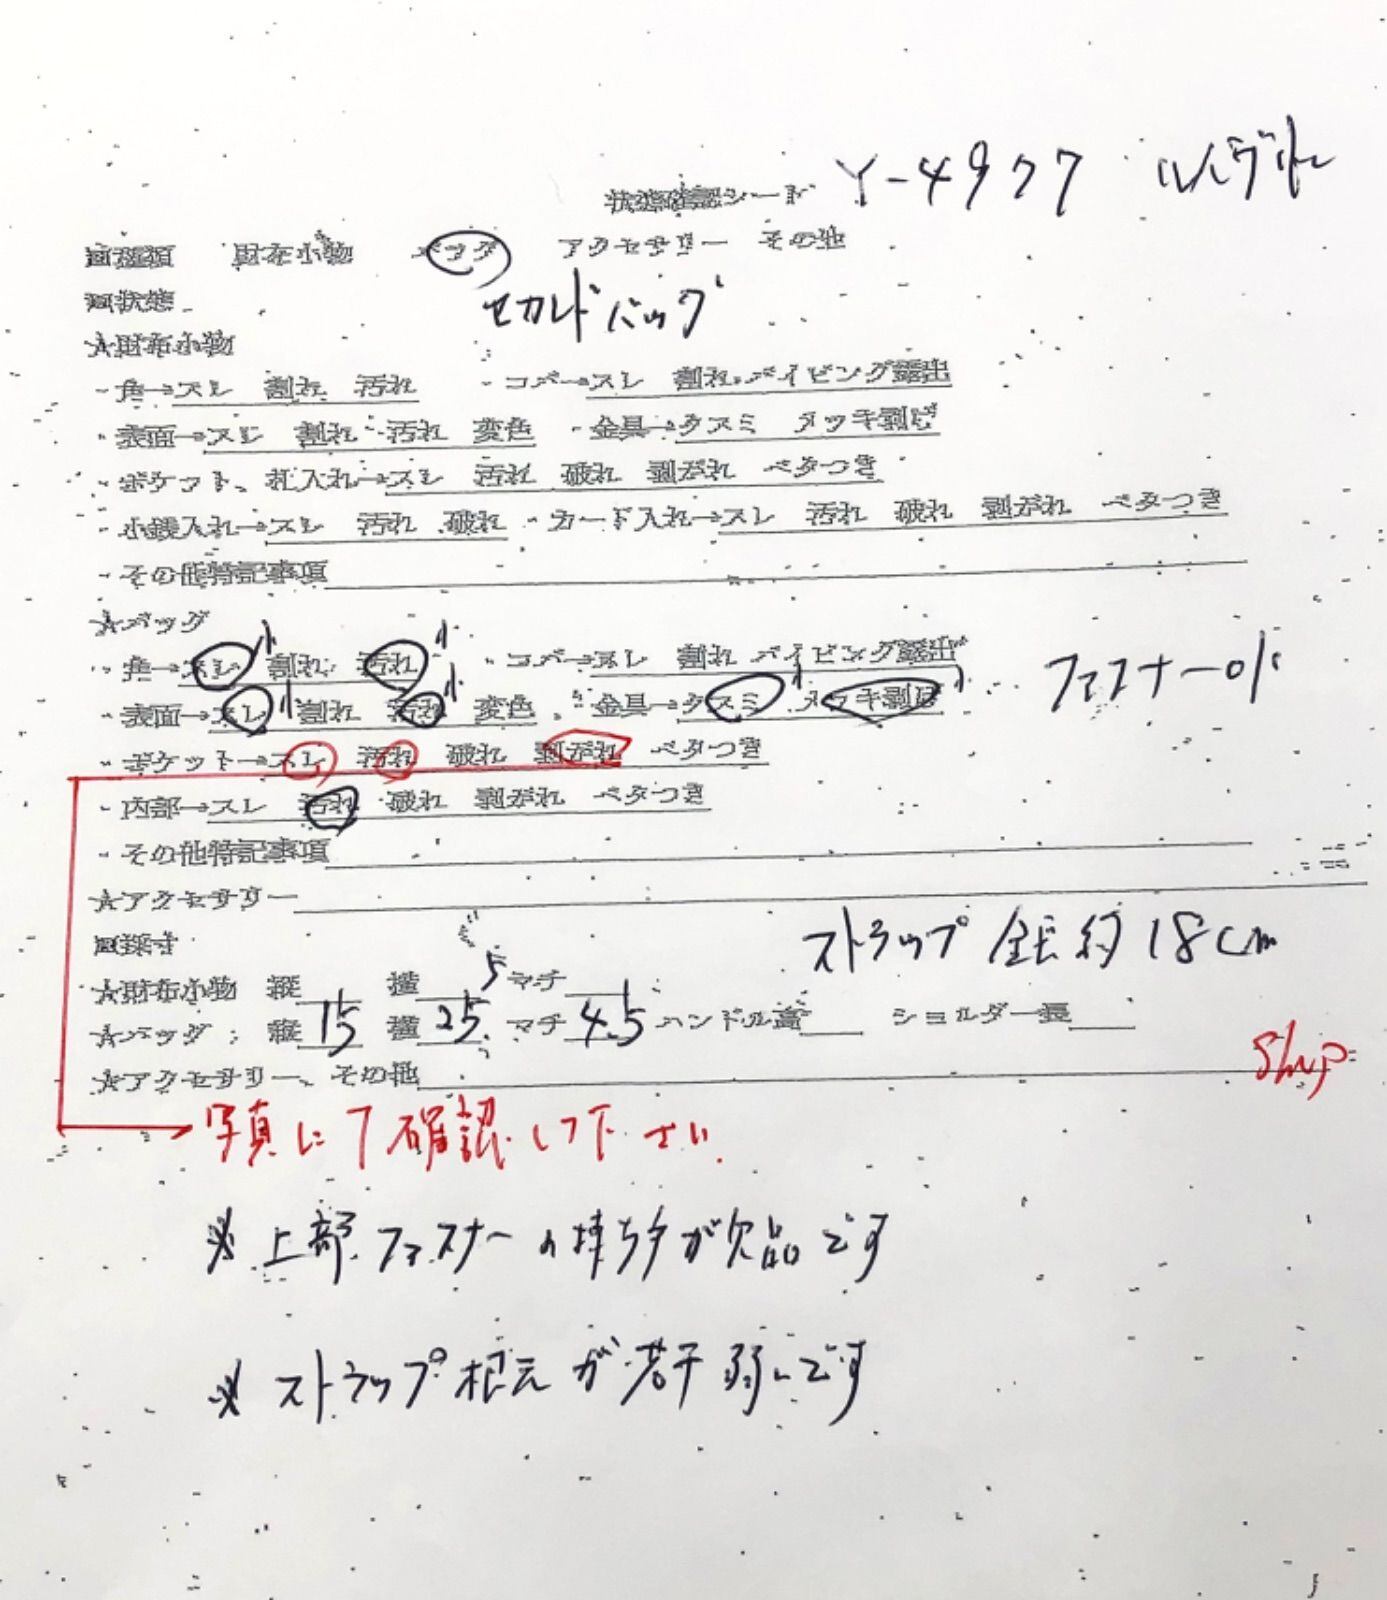 状態確認シート Y-4977 ルイヴィトン
□種類 財布小物 バッグ アクセサリー その他
□状態 セカンドバッグ
☆財布小物
・角→スレ 割れ 汚れ ・コバ→スレ 割れ パイピング露出
・表面→スレ 割れ 汚れ 変色 ・金具→クスミ メッキ剥げ
・ポケット、札入れ→スレ 汚れ 破れ 剥がれ ベタつき
・小銭入れ→スレ 汚れ 破れ ・カード入れ→スレ 汚れ 破れ 剥がれ ベタつき
・その他特記事項
☆バッグ
・角→スレ小 割れ 汚れ小 ・コバ→スレ 割れ パイピング露出
・表面→スレ小 割れ 汚れ小 変色 ・金具→クスミ小 メッキ剥げ小 ファスナーOK
・ポケット→スレ 汚れ 破れ 剥がれ ベタつき
・内部→スレ 汚れ 破れ 剥がれ ベタつき
・その他特記事項
☆アクセサリー
□採寸 ストラップ 全長約18cm
☆財布小物 縦 横 マチ
☆バッグ 縦 15.5 横 25.5 マチ 4.5 ハンドル高 ショルダー長
☆アクセサリー、その他
写真にて確認して下さい
※上部ファスナーの持ち手が欠品です
※ストラップ根元が若干弱いです